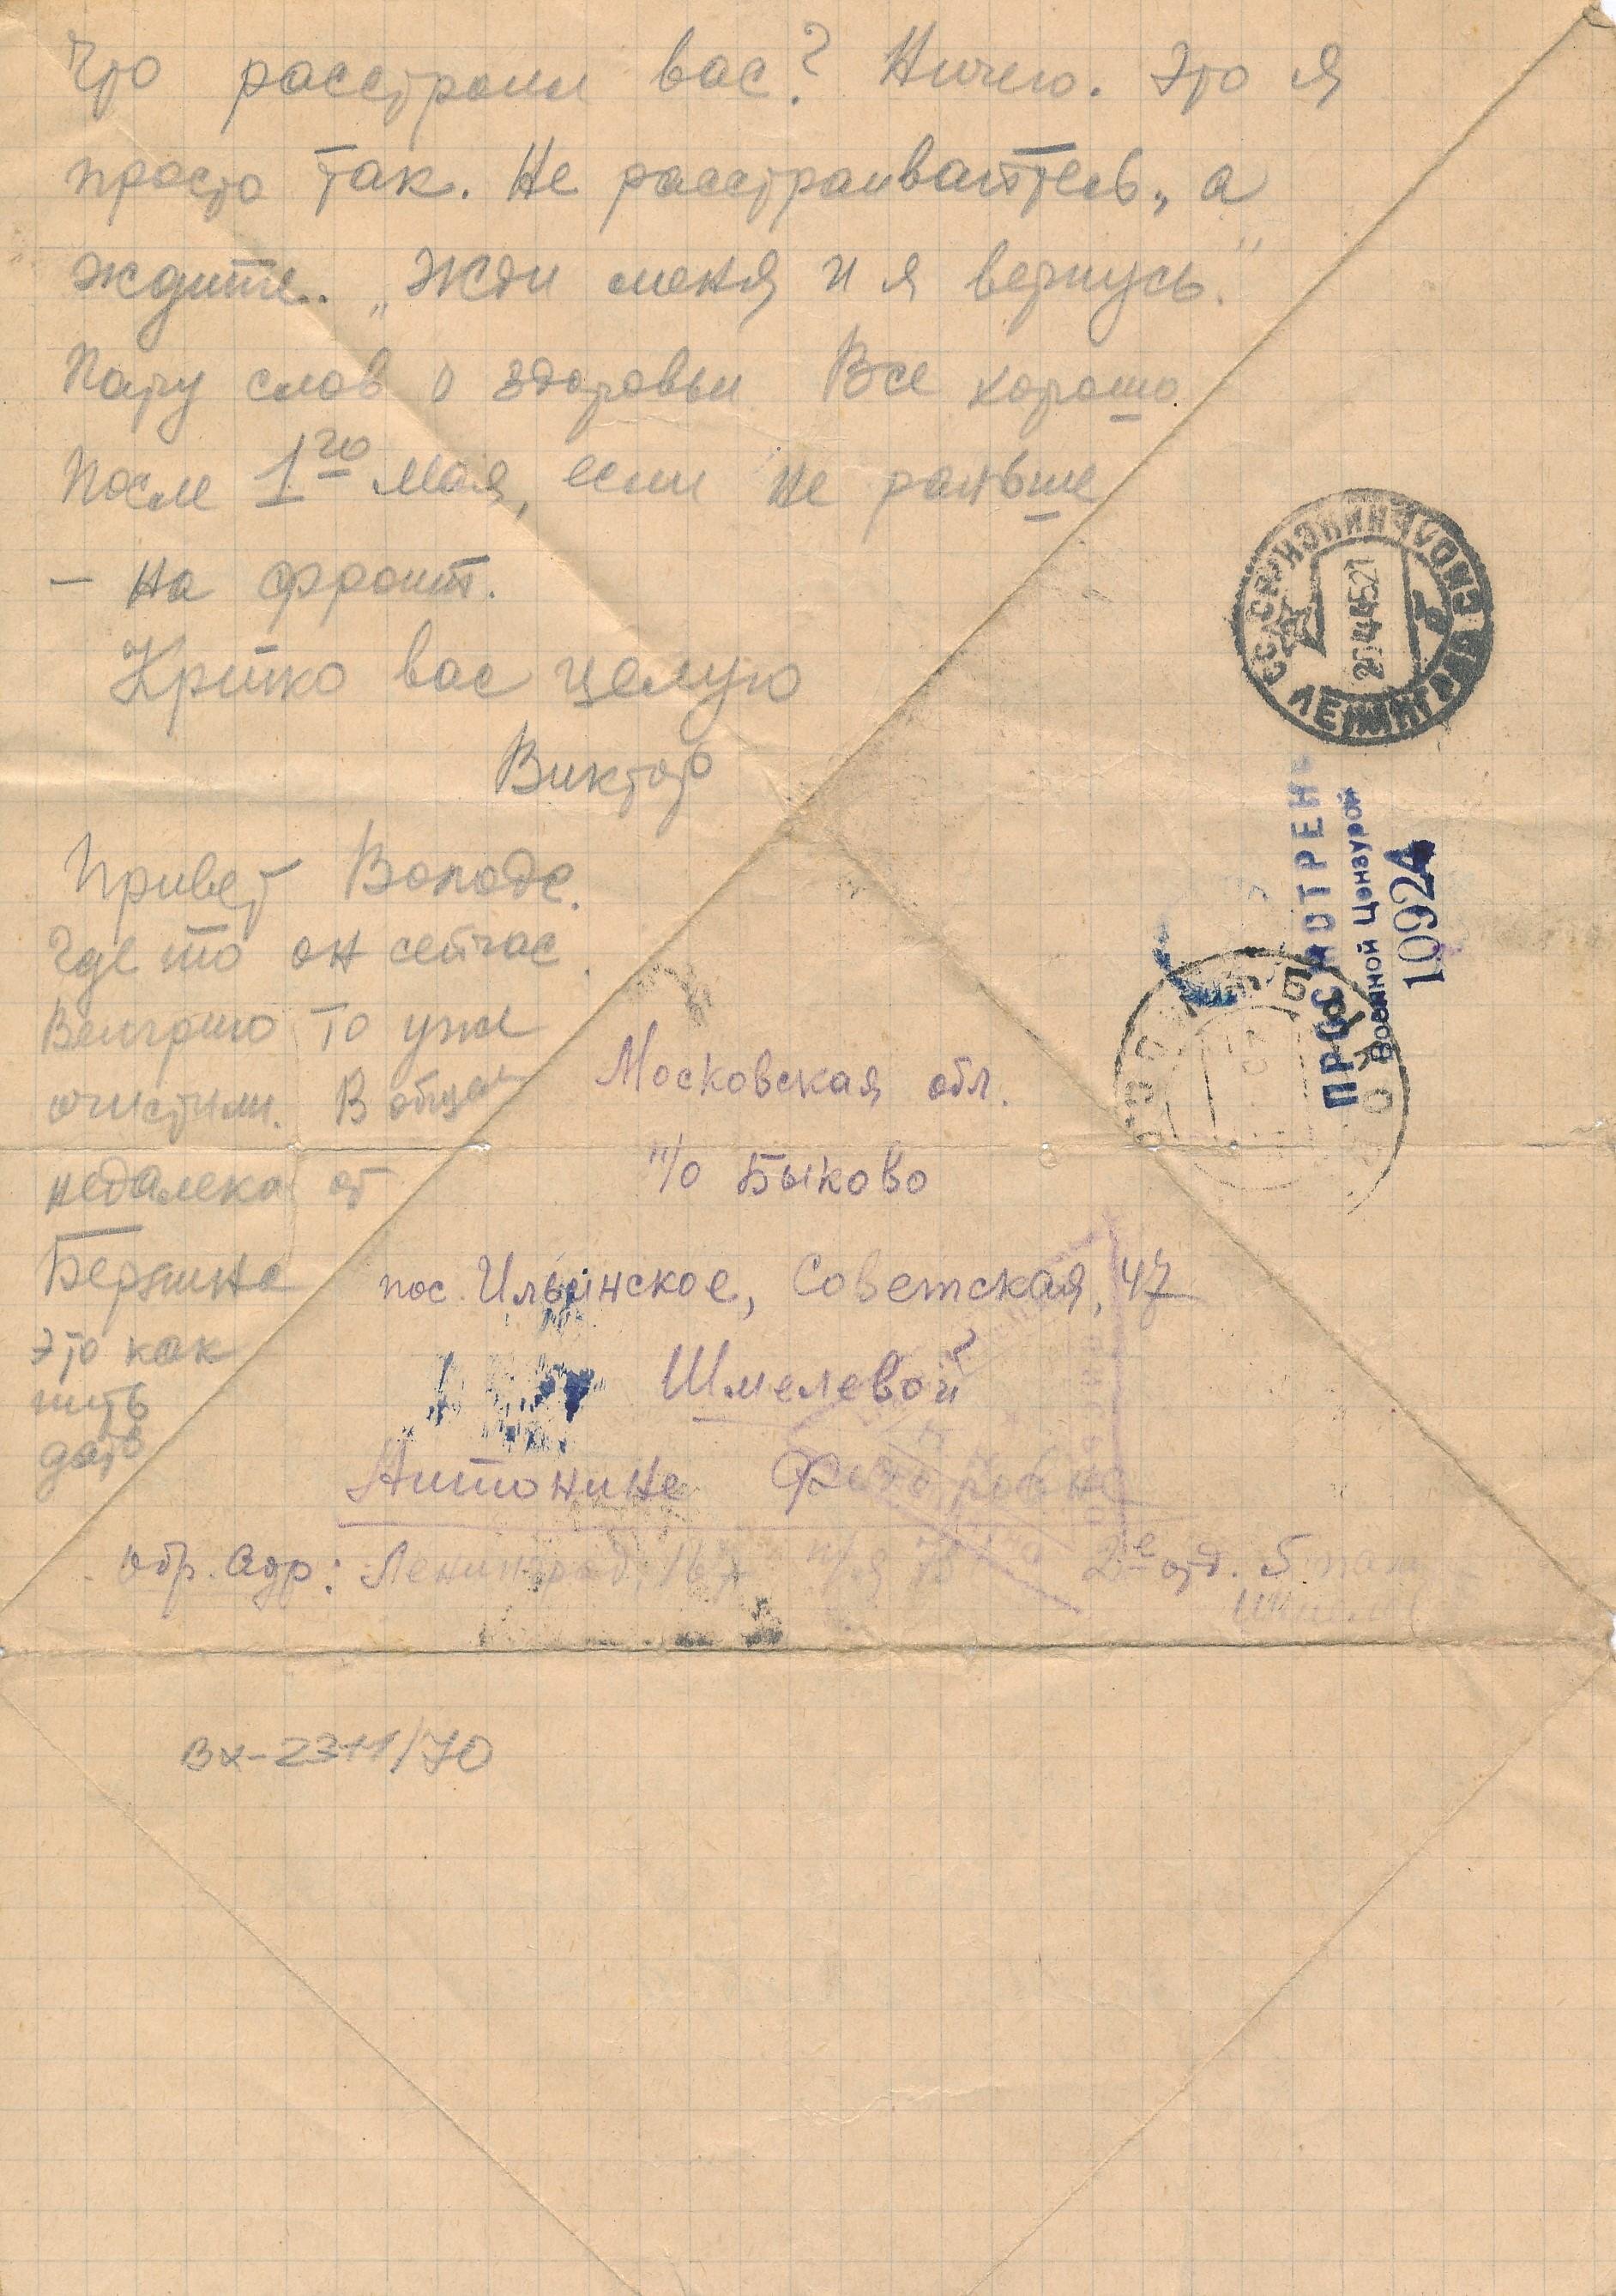 Что расстроил вас? Ничего. Это я
просто так. Не расстраивайтесь, а
ждите. „Жди меня и я вернусь."
Пару слов о здоровьи Все хорошо
После 1го Мая, если не раньше
— на фронт.
Крепко вас целую
Виктор
Привет Володе.
Где то он сейчас.
Венгрию то уже
очистили. В общем
недалеко от
Берлина
это как
пить
дать
Московская обл.
п/о Быково
пос. Ильинское, Советская, 47
Шмелевой
Антонине Федоровне
Обр. адр: Ленинград, 167 п/я 75 2е отд.
Вх-2311/70
СССР
ЛЕНИНГРАД
27 4 45 21
ПРОСМОТРЕНО
Военной Цензурой
10924